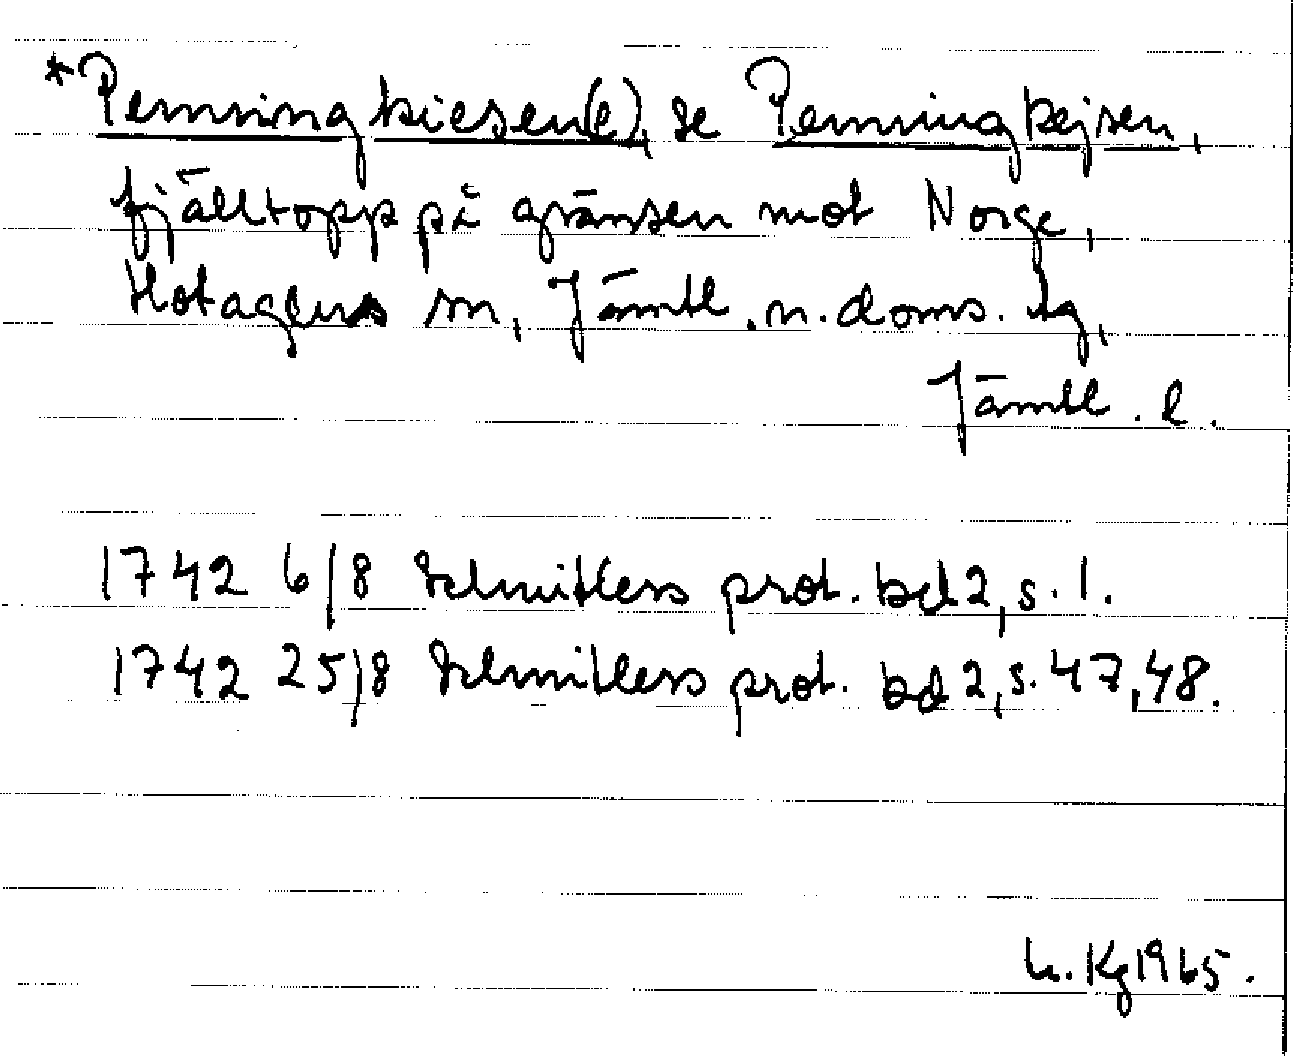 *Penningkiesen(e), se Penningkejsen,
fjälltopp på gränsen mot Norge,
Hotagens sn, Jämtl. n. doms. tg,
Jämtl. l.
1742 6/8 Schnitlers prot. bd 2, s. 1.
1742 25/8 Schnitlers prot. bd 2, s. 47, 48.
Kg 1965.